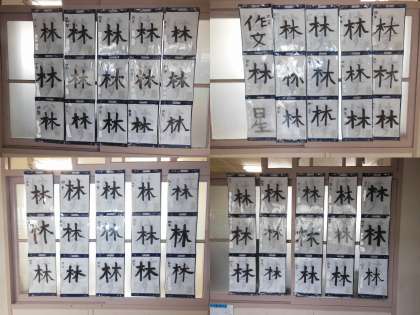 林 林 林 林 林
林 林 林 林 林
林 林 林 林 林
作文 林 林 林 林
林 林 林 林 林
星 林 林 林 林
林 林 林 林 林
林 林 林 林 林
林 林 林 林 林
林 林 林 林 林
林 林 林 林 林
林 林 林 林 林